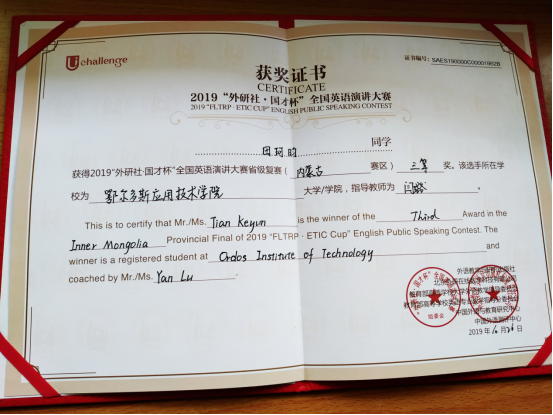 Uchallenge
证书编号：SAES190000C00001902B
获奖证书
CERTIFICATE
2019“外研社·国才杯”全国英语演讲大赛
2019 "FLTRP · ETIC CUP" ENGLISH PUBLIC SPEAKING CONTEST
田珂昀 同学
获得2019“外研社·国才杯”全国英语演讲大赛省级复赛（内蒙古赛区）三等奖。该选手所在学
校为 鄂尔多斯应用技术学院 大学/学院，指导教师为 闫璐 。
This is to certify that Mr./Ms. Tian Keyun is the winner of the Third Award in the
Inner Mongolia Provincial Final of 2019 "FLTRP · ETIC Cup" English Public Speaking Contest. The
winner is a registered student at Ordos Institute of Technology and
coached by Mr./Ms. Yan Lu .
外语教学与研究出版社
教育部高等学校大学外语教学指导委员会
中国外语与教育研究中心
中国外语测评中心
2019年10月26日
组委会